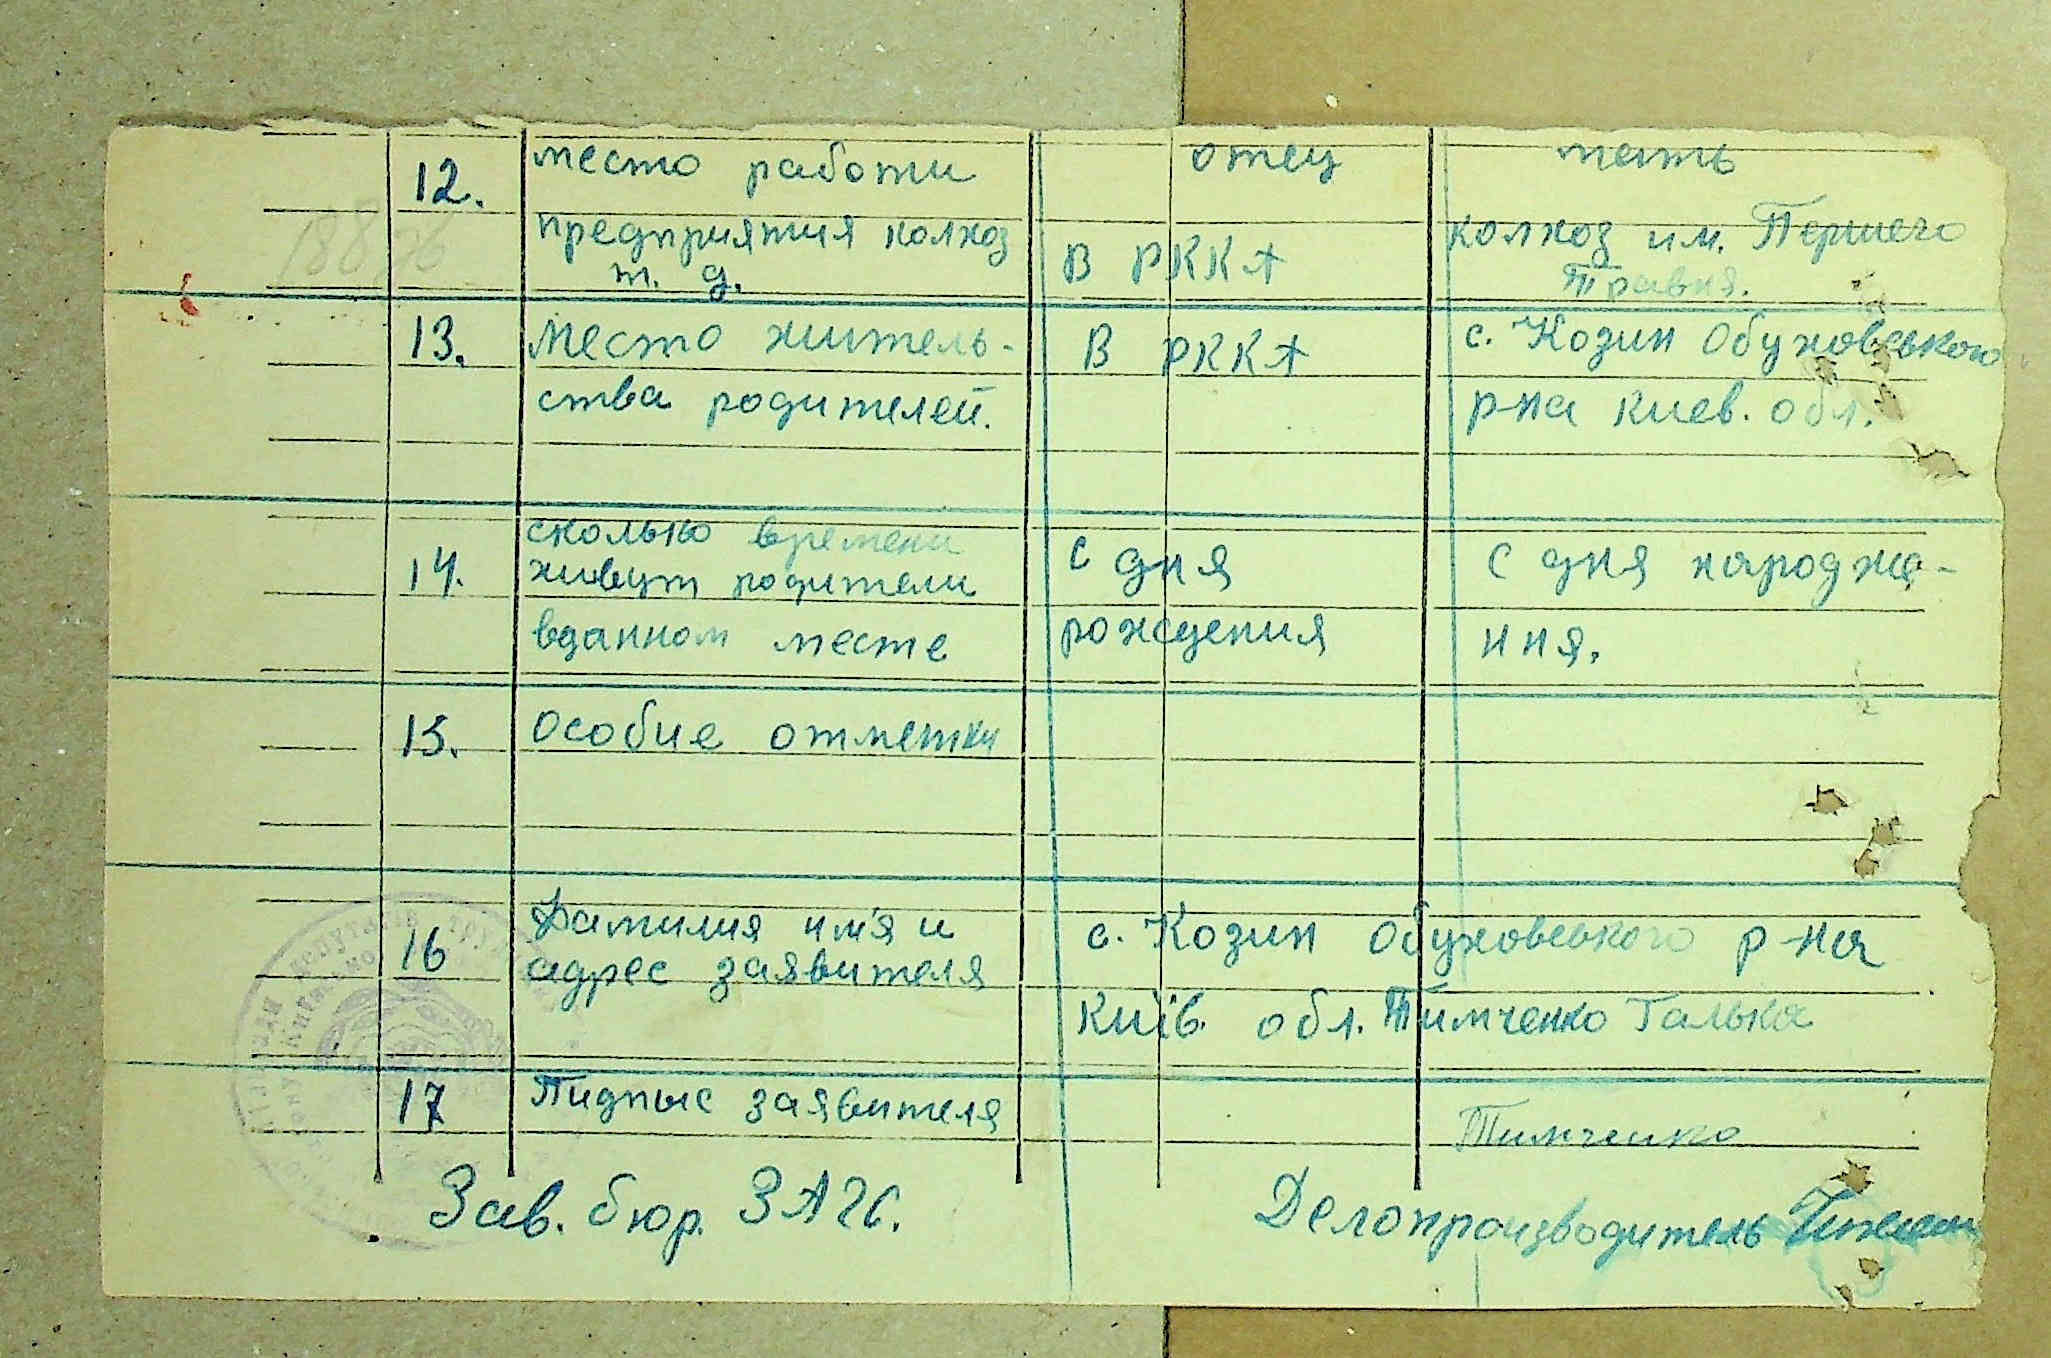 отец мать
12. место работи
предприятия колхоз
т. д.
в РККА
колхоз им. Першего
Травня.
13. Место житель-
ства родителей.
в РККА
с. Козин Обуховського
р-на киев. обл.
14. сколько времени
живут родители
вданном месте
с дня
рождения
с дня народже-
ння.
15. особие отметки
16 Фамилия им'я и
адрес заявителя
с. Козин Обуховського р-на
Київ. обл. Тимченко Галька
17 Пидпыс заявителя
Тимченко
Зав. бюр. ЗАГС.
Делопроизводитель